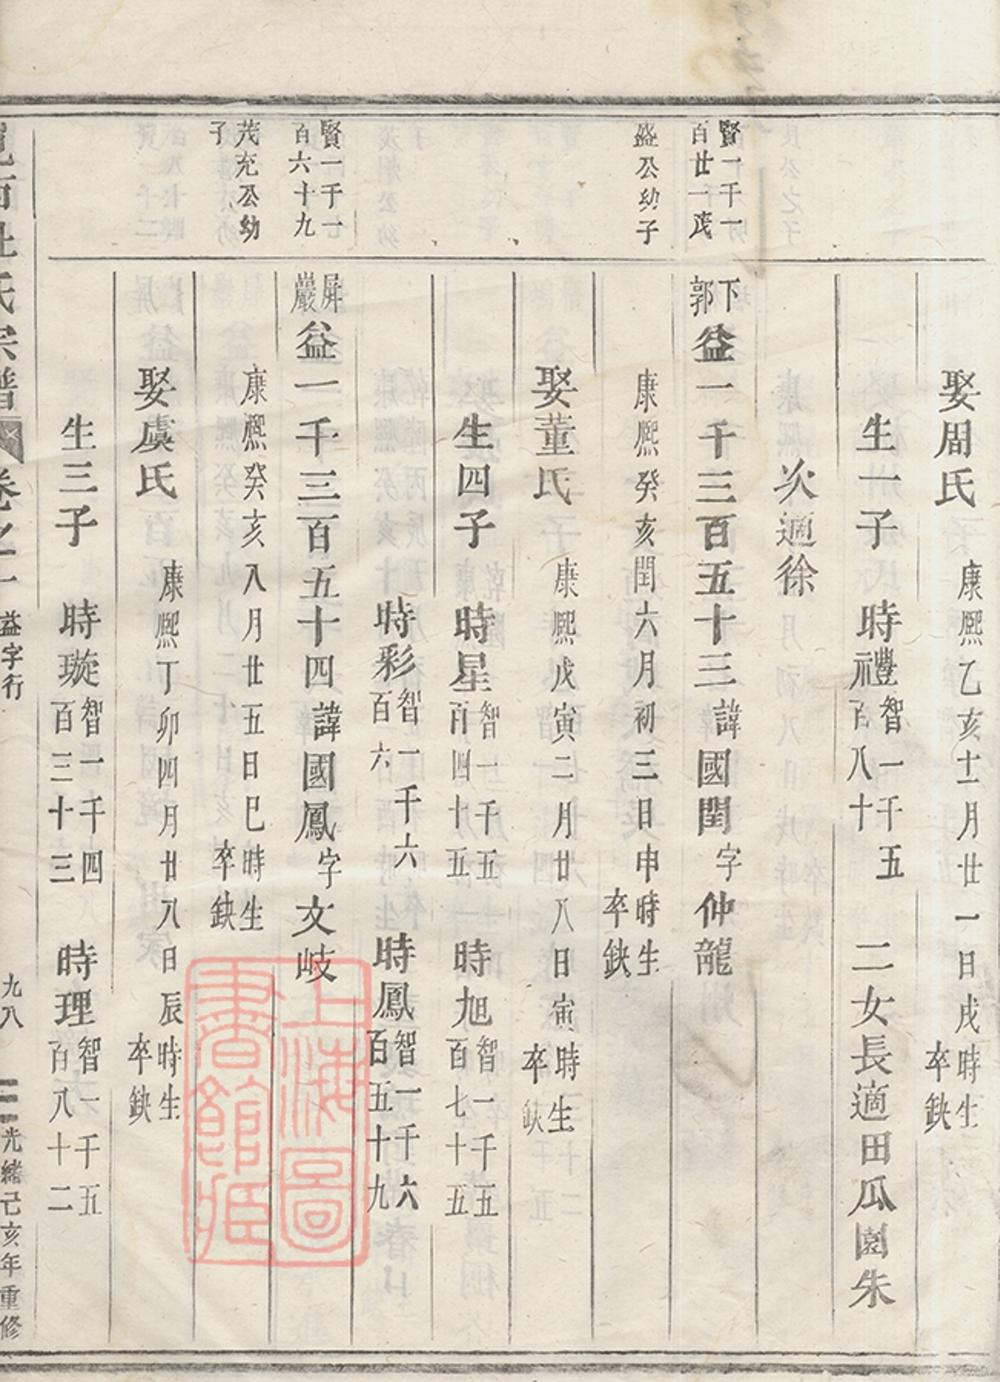 娶周氏 康熙乙亥十一月廿一日戌時生卒缺
生一子 時禮 智一千五百八十 二女長適田瓜園朱
次適徐
賢一千一百廿一茂盛公幼子
下郭 益一千三百五十三 諱國閏 字仲龍
康熙癸亥閏六月初三日申時生卒缺
娶董氏 康熙戊寅二月廿八日寅時生卒缺
生四子 時星 智一千五百四十五 時旭 智一千五百七十五
時彩 智一千六百六 時鳳 智一千六百五十九
賢一千一百六十九茂充公幼子
屏巖 益一千三百五十四 諱國鳳 字文岐
康熙癸亥八月廿五日巳時生卒缺
娶虞氏 康熙丁卯四月廿八日辰時生卒缺
生三子 時璇 智一千四百三十三 時理 智一千五百八十二
杜氏宗譜 卷之一 益字行 九八 光緒己亥年重修
上海圖書館藏